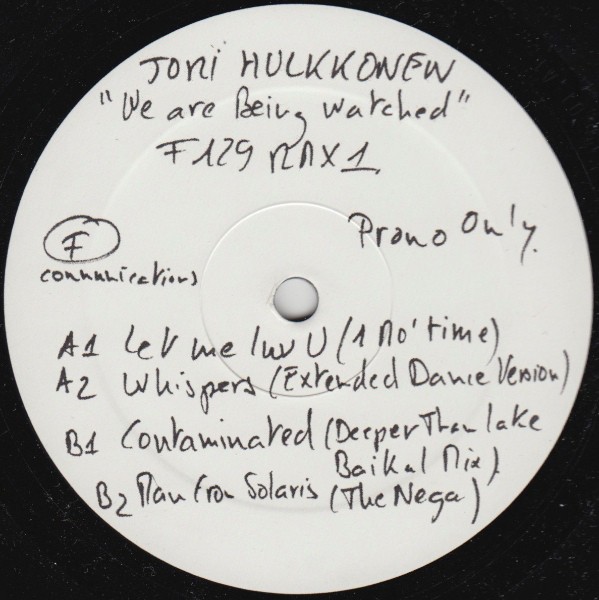 JORI HULKKONEN
"We are Being watched"
F129 RMX1.
Promo Only.
F
communications
A1 Let me luv U (1 Mo' time)
A2 Whispers (Extended Dance Version)
B1 Contaminated (Deeper Than lake
Baikal Mix)
B2 Man From Solaris (The Nega)